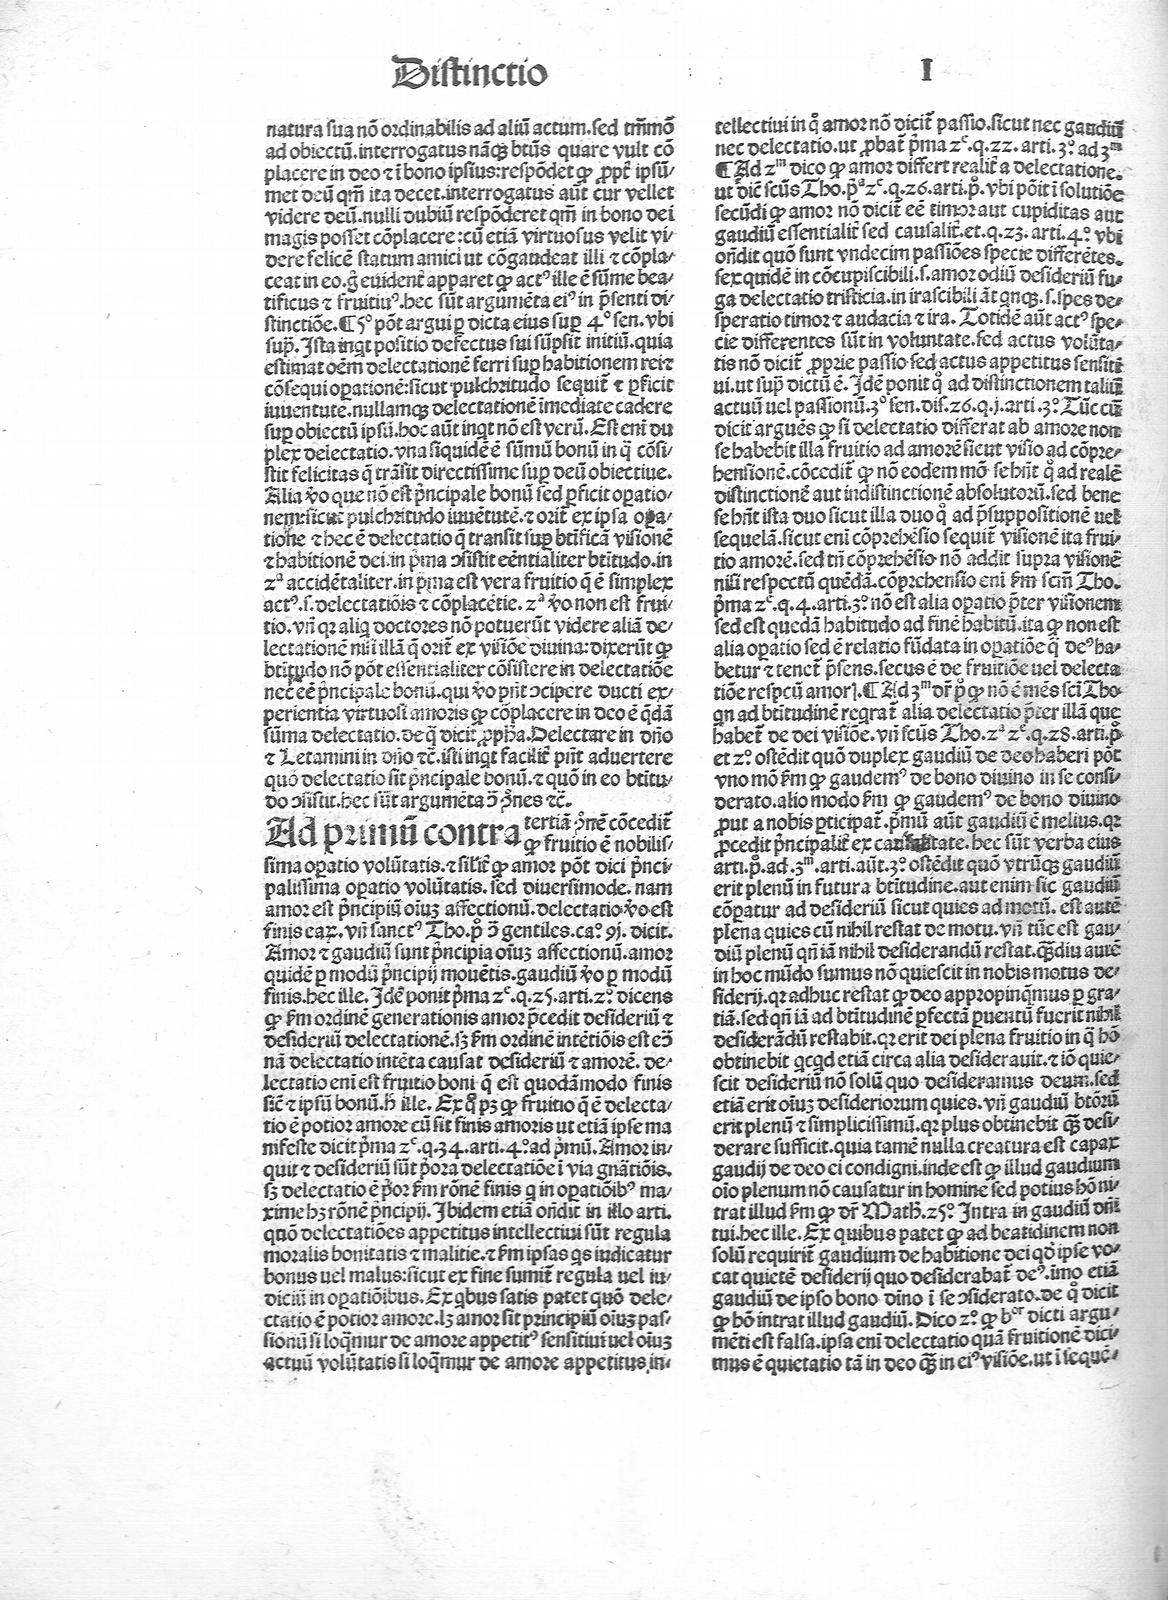 Distinctio
I
natura sua nō ordinabilis ad aliū actum.sed tm̄mō
ad obiectū.interrogatus nāqꝫ btūs quare vult cō
placere in deo ⁊ ī bono ipsius:respōdet ꝙ ꝓpt̄ ipsū/
met deū qm̄ ita decet.interrogatus aūt cur vellet
videre deū.nulli dubiū respōderet qm̄ in bono dei
magis posset cōplacere:cū etiā virtuosus velit vi/
dere felicē statum amici ut cōgaudeat illi ⁊ cōpla/
ceat in eo.g̊ euident̄ apparet ꝙ actꝰ ille ē sūme bea/
tificus ⁊ fruitiuꝰ.hec sūt argumēta eiꝰ in p̄senti di/
stinctiōe.¶5º pōt argui ꝑ dicta eius suꝑ 4º sen.vbi
sup̄. Ista inqt positio defectus sui sūpsit initiū.quia
estimat oēm delectationē ferri suꝑ habitionem rei ⁊
cōsequi oꝑationē:sicut pulchritudo sequit̄ ⁊ ꝑficit
iuuentutē.nullamqꝫ delectationē īmediate cadere
suꝑ obiectū ipsū.hoc aūt inqt nō est verū. Est enī du
plex delectatio.vna siquidē ē sūmū bonū in q̄ cōsi/
stit felicitas q̄ trāsit directissime suꝑ deū obiectiue.
Alia v̊o que nō est p̄ncipale bonū sed ꝑficit oꝑatio/
nem:sicut pulchritudo iuuētutē.⁊ orit̄ ex ipsa oꝑa/
tione ⁊ hec ē delectatio q̄ transit suꝑ btīficā visionē
⁊ habitionē dei.in p̄ma ꝯsistit eēntialiter btītudo.in
zª accidētaliter.in p̄ma est vera fruitio q̄ ē simplex
actꝰ.s.delectatiōis ⁊ cōplacētie. zª v̊o non est frui/
tio.vn̄ qꝛ aliq̄ doctores nō potuerūt videre aliā de/
lectationē nisi illā q̄ orit̄ ex visiōe diuina: dixerūt ꝙ
btītudo nō pōt essentialiter cōsistere in delectatiōe
nec̄ eē p̄ncipale bonū.qui v̊o pn̄t ꝯcipere ducti ex/
perientia virtuosi amoris ꝙ cōplacere in deo ē q̄dā
sūma delectatio.de q̄ dicit ꝓph̄a.Delectare in dn̄o
⁊ Letamini in dn̄o ⁊c̄.isti inqt facilit̄ pn̄t aduertere
quō delectatio sit p̄ncipale bonū.⁊ quō in eo btītu/
do ꝯsistit.hec sūt argumēta ꝯ̄ ꝯ̄nes ⁊c̄.
Ad primū contra tertiā ꝯ̄nē cōcedit̄
ꝙ fruitio ē nobilis/
sima oꝑatio volūtatis.⁊ silit̄ ꝙ amor pōt dici p̄nci/
palissima oꝑatio volūtatis. sed diuersimode. nam
amor est p̄ncipiū oīuꝫ affectionū.delectatio v̊o est
finis eaꝝ. vn̄ sanctꝰ Tho.p̊ ꝯ̄ gentiles.caº 9j. dicit.
Amor ⁊ gaudiū sunt p̄ncipia oīuꝫ affectionū.amor
quidē ꝑ modū p̄ncipij mouētis.gaudiū v̊o ꝑ modū
finis.hec ille. Idē ponit p̄ma zᵉ.q.25.arti.zº dicens
ꝙ ẜm ordinē generationis amor p̄cedit desideriū ⁊
desideriū delectationē.sꝫ ẜm ordinē intētiōis est ecō
nā delectatio intēta causat desideriū ⁊ amorē. de/
lectatio enī est fruitio boni q̄ est quodāmodo finis
sic̄ ⁊ ipsū bonū.h̄ ille. Ex q̊ pꝫ ꝙ fruitio q̄ ē delecta/
tio ē potior amore cū sit finis amoris ut etiā ipse ma
nifeste dicit p̄ma zᵉ.q.34.arti.4º ad p̄mū. Amor in/
quit ⁊ desideriū sūt p̄ora delectatiōe ī via gn̄atiōis.
sꝫ delectatio ē p̄or ẜm rōnē finis q̄ in oꝑatiōibꝰ ma/
xime hꝫ rōnē p̄ncipij. Ibidem etiā on̄dit in illo arti.
quō delectatiōes appetitus intellectiui sūt regula
moralis bonitatis ⁊ malitie.⁊ ẜm ipsas q̄s iudicatur
bonus uel malus:sicut ex fine sumit̄ regula uel iu/
diciū in oꝑatiōibus. Ex qbus satis patet quō dele/
ctatio ē potior amore.lꝫ amor sit principiū oīuꝫ pas/
sionū si loqm̄ur de amore appetitꝰ sensitiui uel oīuꝫ
actuū volūtatis si loqm̄ur de amore appetitus in/
tellectiui in q̊ amor nō dicit̄ passio.sicut nec gaudiū
nec delectatio.ut ꝓbat̄ p̄ma zᵉ.q.22. arti.3º ad 3ᵐ
¶Ad zᵐ dico ꝙ amor differt realit̄ a delectatione.
ut dic̄ scūs Tho.p̄ª zᵉ.q.26.arti.p̊. vbi pōit ī solutiōe
secūdi ꝙ amor nō dicit̄ eē timor aut cupiditas aut
gaudiū essentialit̄ sed causalit̄.et.q.23.arti.4º vbi
on̄dit quō sunt vndecim passiōes specie differētes.
sex quidē in cōcupiscibili.s.amor odiū desideriū fu/
ga delectatio tristicia.in irascibili āt qnqꝫ.s.spes de/
speratio timor ⁊ audacia ⁊ ira. Totidē aūt actꝰ spe/
cie differentes sūt in voluntate.sed actus volūta/
tis nō dicit̄ ꝓprie passio sed actus appetitus sensiti
ui.ut sup̄ dictū ē. Idē ponit q̊ ad distinctionem taliū
actuū uel passionū.3º sen.dis.26.q.j.arti.3º. Tūc cū
dicit arguēs ꝙ si delectatio differat ab amore non
se habebit illa fruitio ad amorē sicut visio ad cōpre/
hensionē.cōcedit̄ ꝙ nō eodem mō se hn̄t q̊ ad realē
distinctionē aut indistinctionē absolutorū.sed bene
se hn̄t ista duo sicut illa duo q̊ ad p̄suppositionē uel
sequelā.sicut enī cōprehēsio sequit̄ visionē ita frui/
tio amorē.sed tn̄ cōprehēsio nō addit supra visionē
nisi respectū quēdā.cōprehensio enī ẜm scm̄ Tho.
p̄ma zᵉ.q.4.arti.3º nō est alia oꝑatio p̄ter visionem
sed est quedā habitudo ad finē habitū.ita ꝙ non est
alia oꝑatio sed ē relatio fūdata in oꝑatiōe q̄ deꝰ ha/
betur ⁊ tenet̄ p̄sens.secus ē de fruitiōe uel delecta
tiōe respcū amorꝭ.¶Ad 3ᵐ dr̄ p̊ ꝙ nō ē mēs sci Tho
qn ad btītudinē reqrat̄ alia delectatio p̄ter illā que
habet̄ de dei visiōe. vn̄ scūs Tho.zª zᵉ.q.28.arti.p̊
et zº ostēdit quō duplex gaudiū de deo haberi pōt
vno mō ẜm ꝙ gaudemꝰ de bono diuino in se consi/
derato.alio modo ẜm ꝙ gaudemꝰ de bono diuino
ꝓut a nobis ꝑticipat̄.p̄mū aūt gaudiū ē melius.qꝛ
ꝓcedit p̄ncipalit̄ ex caritate.hec sūt verba eius
arti.p̊.ad.3ᵐ.arti.aūt.3º ostēdit quō vtrūqꝫ gaudiū
erit plenū in futura btītudine.aut enim sic gaudiū
cōpatur ad desideriū sicut quies ad motū. est autē
plena quies cū nihil restat de motu. vn̄ tūc est gau/
diū plenū qn̄ iā nihil desiderandū restat.qꝫdiu autē
in hoc mūdo sumus nō quiescit in nobis motus de/
siderij.qꝛ adhuc restat ꝙ deo appropinq̄mus ꝑ gra/
tiā.sed qn̄ iā ad btītudinē ꝑfectā ꝑuentū fuerit nihil
desiderādū restabit.qꝛ erit dei plena fruitio in q̄ hō
obtinebit qcqd etiā circa alia desiderauit.⁊ iō quie/
scit desideriū nō solū quo desideramus deum.sed
etiā erit oīuꝫ desideriorum quies. vn̄ gaudiū btōrū
erit plenū ⁊ simplicissimū.qꝛ plus obtinebit qꝫ desi/
derare sufficit. quia tamē nulla creatura est capax
gaudij de deo ei condigni.inde est ꝙ illud gaudium
oīo plenum nō causatur in homine sed potius hō in/
trat illud ẜm ꝙ dr̄ Math.25º. Intra in gaudiū dn̄i
tui.hec ille. Ex quibus patet ꝙ ad beatidinem non
solū requirit̄ gaudium de habitione dei qd̓ ipse vo/
cat quietē desiderij quo desiderabat̄ deꝰ.imo etiā
gaudiū de ipso bono dīno ī se ꝯsiderato.de q̊ dicit
ꝙ hō intrat illud gaudiū. Dico zº.ꝙ bᵒʳ dicti argu/
mēti est falsa.ipsa enī delectatio quā fruitionē dici/
mus ē quietatio tā in deo qꝫ in eiꝰ visiōe.ut ī sequē/